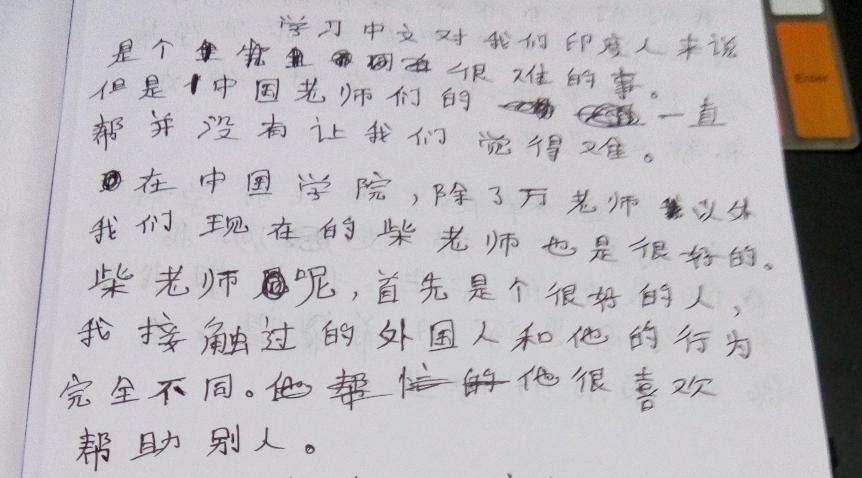 学习中文对我们印度人来说
是个很难的事。
但是中国老师们的一直
帮并没有让我们觉得难。
在中国学院，除了万老师以外
我们现在的柴老师也是很好的。
柴老师呢，首先是个很好的人，
我接触过的外国人和他的行为
完全不同。他帮忙的他很喜欢
帮助别人。
Enter